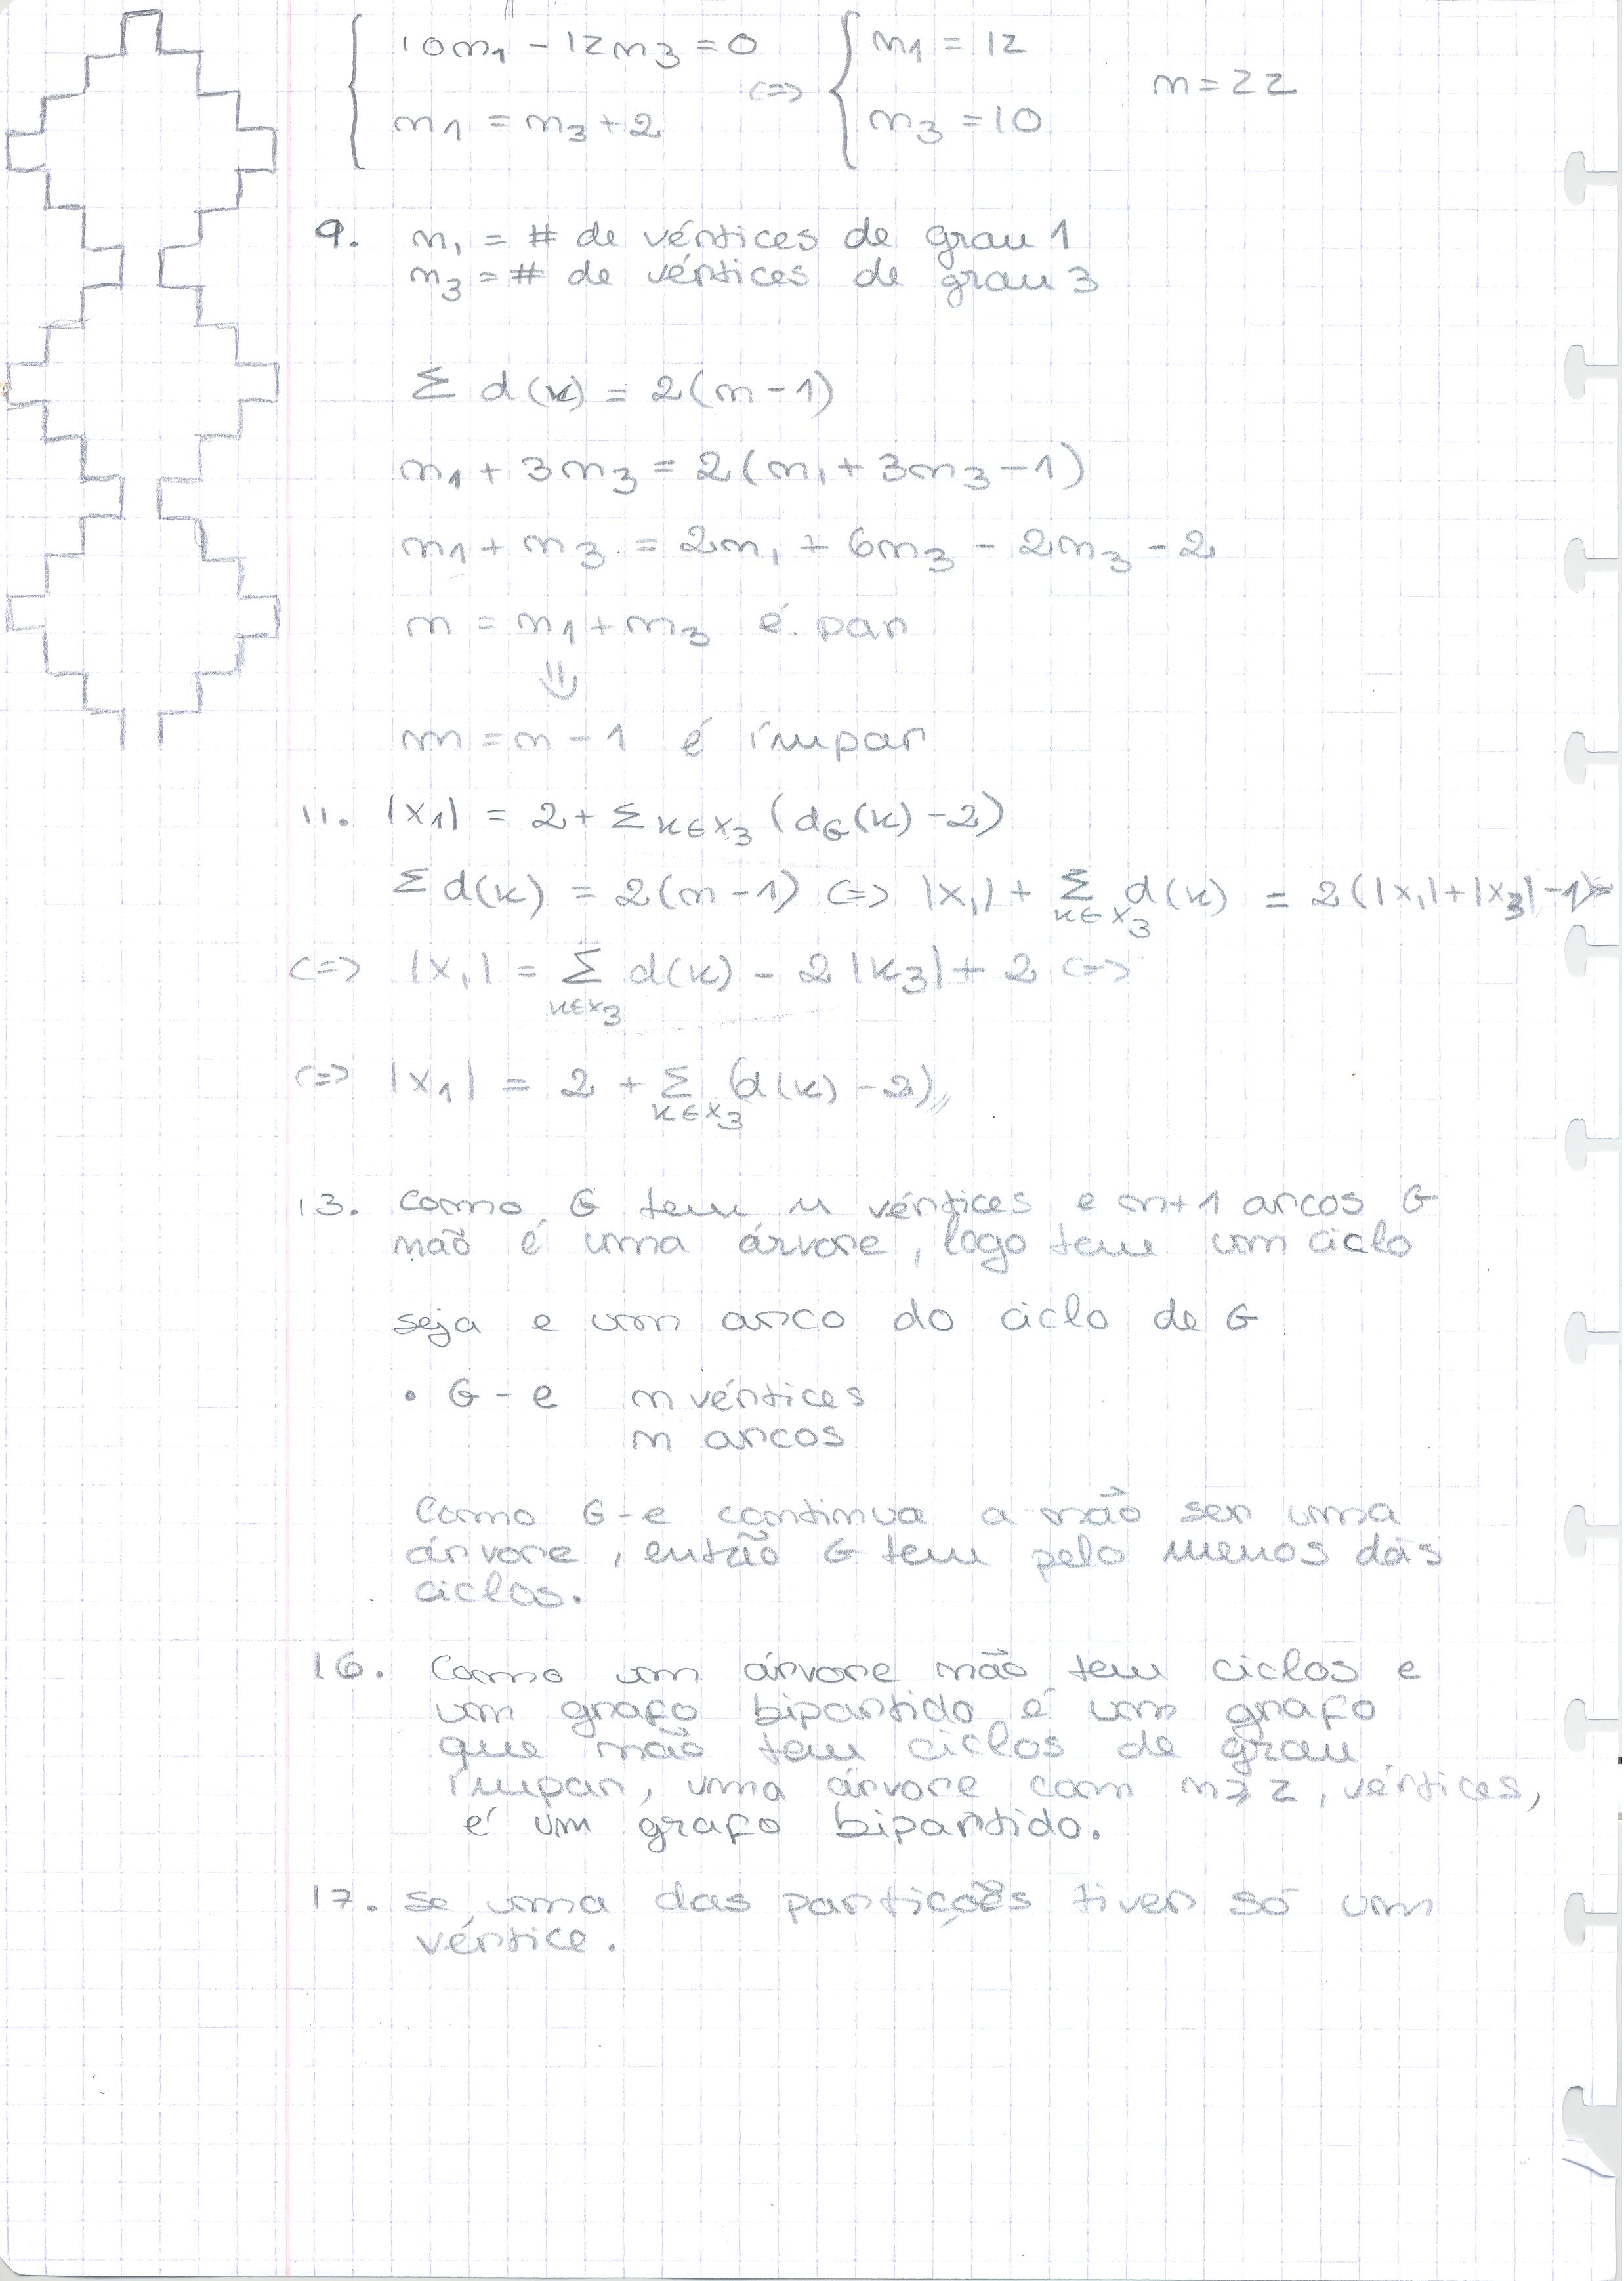 10n₁ - 12n₃ = 0
n₁ = n₃ + 2
<=>
n₁ = 12
n₃ = 10
n = 22
9. n₁ = # de vértices de grau 1
n₃ = # de vértices de grau 3
Σ d(x) = 2(n-1)
n₁ + 3n₃ = 2(n₁ + 3n₃ - 1)
n₁ + n₃ = 2n₁ + 6n₃ - 2n₃ - 2
n = n₁ + n₃ é par
⇓
m = n - 1 é ímpar
11. |X₁| = 2 + Σ x∈X₃ (d_G(x) - 2)
Σ d(x) = 2(n-1) <=> |X₁| + Σ x∈X₃ d(x) = 2(|X₁| + |X₃| - 1) <=>
<=> |X₁| = Σ x∈X₃ d(x) - 2|X₃| + 2 <=>
<=> |X₁| = 2 + Σ x∈X₃ (d(x) - 2)//
13. Como G tem n vértices e n+1 arcos G
não é uma árvore, logo tem um ciclo
seja e um arco do ciclo de G
• G - e n vértices
n arcos
Como G-e continua a não ser uma
árvore, então G tem pelo menos dois
ciclos.
16. Como um árvore não tem ciclos e
um grafo bipartido é um grafo
que não tem ciclos de grau
ímpar, uma árvore com n ≥ 2, vértices,
é um grafo bipartido.
17. se uma das partições tiver só um
vértice.